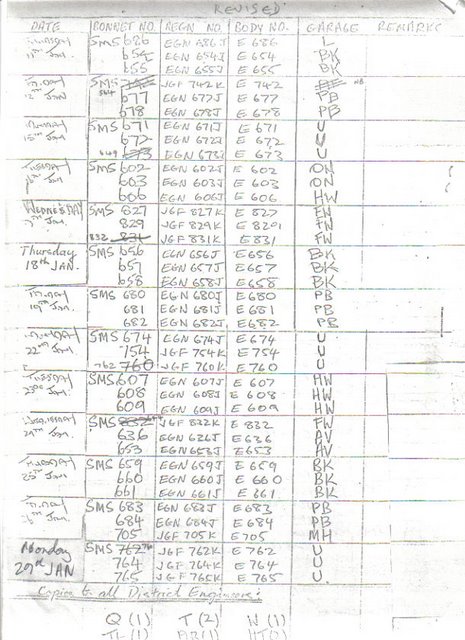 REVISED
DATE BONNET NO. REGN NO. BODY NO. GARAGE REMARKS
THURSDAY SMS 686 EGN 686J E 686 L
11TH JAN 654 EGN 654J E 654 BK
655 EGN 655J E 655 BK
FRIDAY SMS JGF 742K E 742
12TH JAN 677 EGN 677J E 677 PB
678 EGN 678J E 678 PB
MONDAY SMS 671 EGN 671J E 671 U
15TH JAN 672 EGN 672J E 672 U
669 673 EGN 673J E 673 U
TUESDAY SMS 602 EGN 602J E 602 ON
JAN 603 EGN 603J E 603 ON
606 EGN 606J E 606 HW
WEDNESDAY SMS 827 JGF 827K E 827 FW
JAN. 829 JGF 829K E 8291 FW
832 831 JGF 831K E831 FW
Thursday SMS 656 EGN 656J E656 BK
18th JAN. 657 EGN 657J E657 BK
658 EGN 658J E 658 BK
FRIDAY SMS 680 EGN 680J E680 PB
19TH JAN. 681 EGN 681J E681 PB
682 EGN 682J E682 PB
MONDAY SMS 674 EGN 674J E 674 U
22ND JAN. 754 JGF 754K E754 U
762 760 JGF 760K E 760 U
TUESDAY SMS 607 EGN 607J E 607 HW
23RD JAN. 608 EGN 608J E 608 HW
609 EGN 609J E 609 HW
WEDNESDAY SMS 832 JGF 832K E 832 FW
24TH JAN. 636 EGN 636J E 636 AV
653 EGN 653J E653 AV
THURSDAY SMS 659 EGN 659J E 659 BK
25TH JAN 660 EGN 660J E 660 BK
661 EGN 661J E 661 BK
FRIDAY SMS 683 EGN 683J E683 PB
26TH JAN. 684 EGN 684J E 684 PB
705 JGF 705K E705 MH
Monday SMS 762 JGF 762K E 762 U
29th JAN 764 JGF 764K E 764 U
765 JGF 765K E 765 U.
Copies to all District Engineers:
Q (1) T (2) W (1)